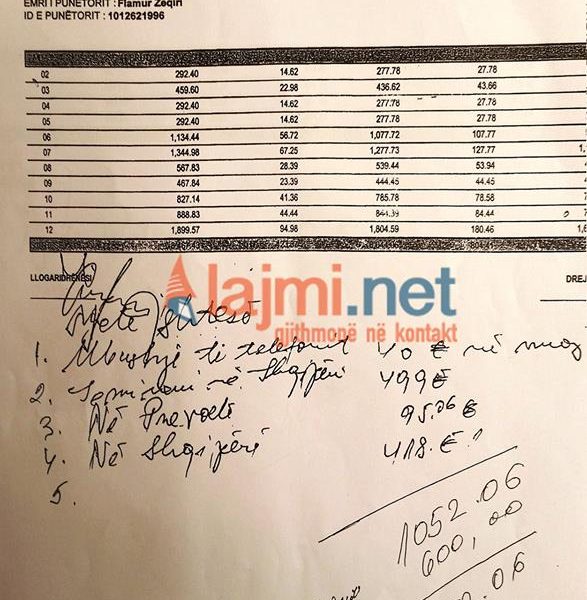 EMRI I PUNËTORIT : Flamur Zeqiri
ID E PUNËTORIT : 1012621996
02 292.40 14.62 277.78 27.78
03 459.60 22.98 436.62 43.66
04 292.40 14.62 277.78 27.78
05 292.40 14.62 277.78 27.78
06 1,134.44 56.72 1,077.72 107.77
07 1,344.98 67.25 1,277.73 127.77
08 567.83 28.39 539.44 53.94
09 467.84 23.39 444.45 44.45
10 827.14 41.36 785.78 78.58
11 888.83 44.44 84.44
12 1,899.57 94.98 1,804.59 180.46
LLOGARIDHËNËSI DREJ
lajmi.net
gjithmonë në kontakt
1. Mbushje të telefonit 40 € në muaj
2. në Shqipëri 499€
3. Në 95.06 €
4. Në Shqipëri 418.€
5.
1052.06
600,00
.06